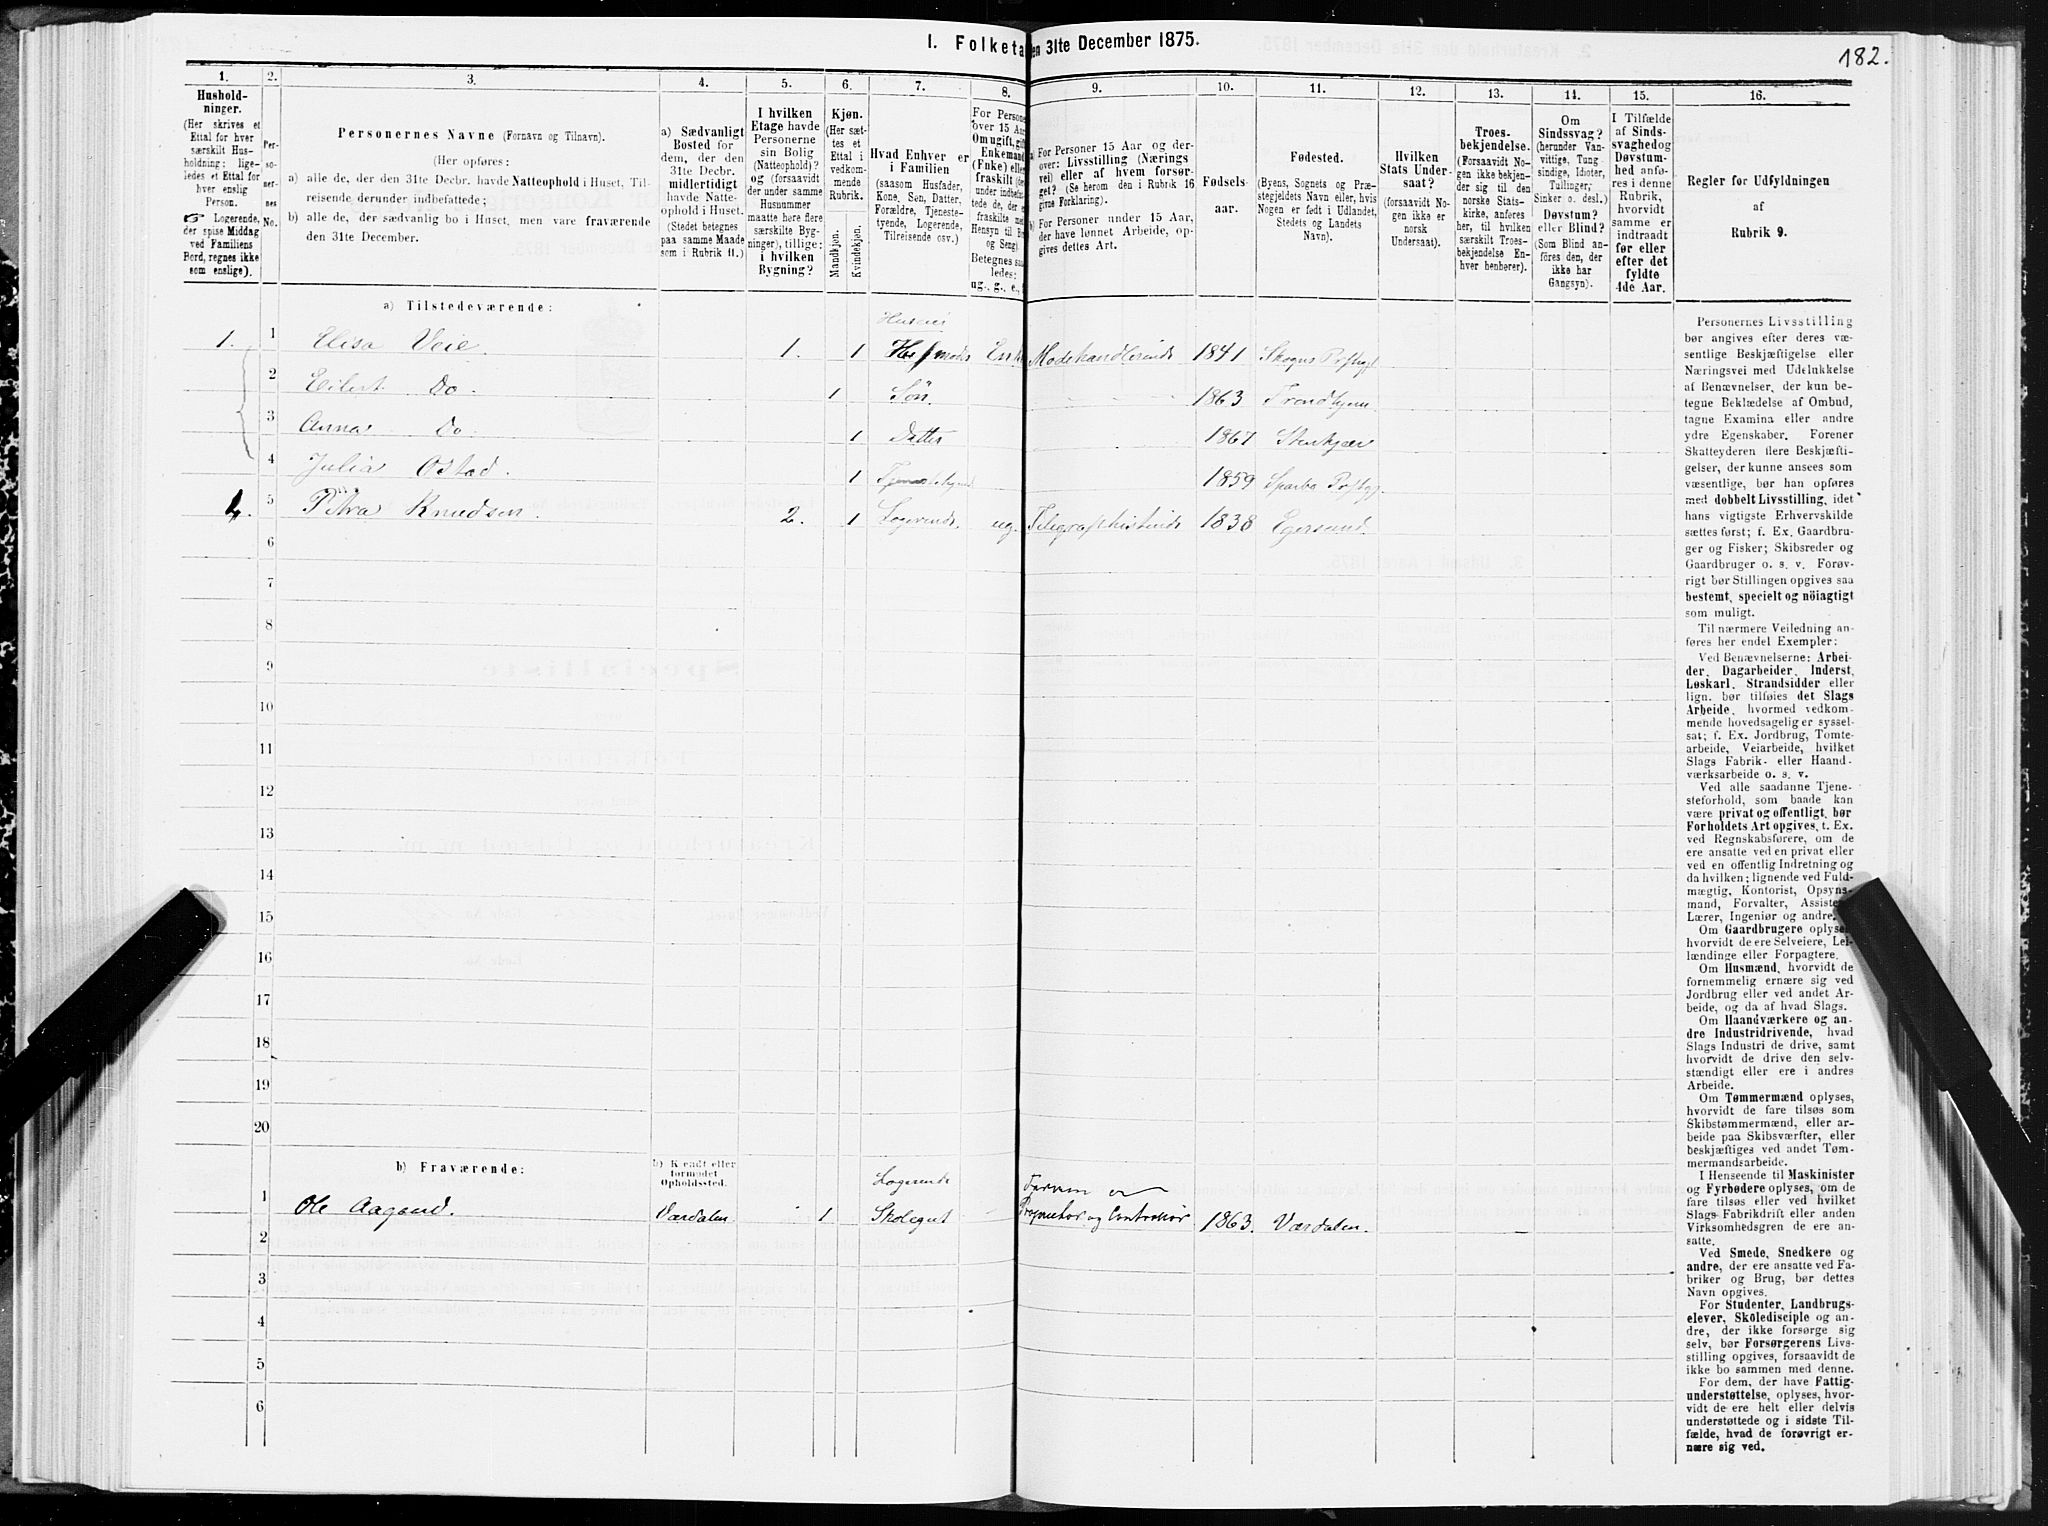 I. Folketa en 31te December 1875.
182.
1.
2.
3.
4.
5.
6.
7.
8.
9.
10.
11.
12.
13.
14.
15.
16.
Hushold-
ninger.
(Her skrives et
Ettal for hver
særskilt Hus-
holdning; lige-
ledes et Ettal for
hver enslig
Person.
☞ Logerende,
der spise Middag
ved Familiens
Bord, regnes ikke
som enslige).
Per-
so-
ner-
nes
No.
Personernes Navne (Fornavn og Tilnavn).
(Her opføres:
a) alle de, der den 31te Decbr. havde Natteophold i Huset, Til-
reisende derunder indbefattede;
b) alle de, der sædvanlig bo i Huset, men vare fraværende
den 31te December.
a) Sædvanligt
Bosted for
dem, der den
31te Decbr.
midlertidigt
havde Natte-
ophold i Huset.
(Stedet betegnes
paa samme Maade
som i Rubrik 11.)
I hvilken
Etage havde
Personerne
sin Bolig
(Natteophold)?
og (forsaavidt
der under samme
Husnummer
maatte høre flere
særskilte Byg-
ninger), tillige:
i hvilken
Bygning?
Kjøn.
(Her sæt-
tes et
Ettal i
vedkom-
mende
Rubrik.
Mandkjøn.
Kvindekjøn.
Hvad Enhver er
i Familien
(saasom Husfader,
Kone, Søn, Datter,
Forældre, Tjeneste-
tyende, Logerende,
Tilreisende osv.)
For Persone
over 15 Aa
Omugift, gif
Enkemand
(Fnke) elle
fraskilt (de
under indbefat
de, der e
fraskilte me
Hensyn til B
og Seng).
Betegnes saa
ledes:
ug., g., e.,
a) For Personer 15 Aar og der-
over: Livsstilling (Nærings
vei) eller af hvem forsør-
get? (Se herom den i Rubrik 16
givne Forklaring).
b) For Personer under 15 Aar,
der have lønnet Arbeide, op-
gives dettes Art.
Fødsels-
aar.
Fødested.
(Byens, Sognets og Præ-
stegjeldets Navn eller, hvis
Nogen er født i Udlandet,
Stedets og Landets
Navn).
Hvilken
Stats Under-
saat?
(forsaavidt No-
gen ikke er
norsk
Undersaat).
Troes-
bekjendelse.
(Forsaavidt No-
gen ikke bekjen-
der sig til den
norske Stats-
kirke, anføres
her, til hvilken
særskilt Troes-
bekjendelse En-
hver henhører).
Om
Sindssvag?
(herunder Van-
vittige, Tung
sindige, Idioter,
Tullinger,
Sinker o. desl.)
Døvstum?
eller Blind?
(Som Blind an-
føres den, der
ikke har
Gangsyn).
I Tilfælde
af Sinds-
svaghed og
Døvstum-
hed anfø-
res i denne
Rubrik,
hvorvidt
samme er
indtraadt
før eller
efter det
fyldte
4de Aar.
Regler for Udfyldningen
af
Rubrik 9.
a) Tilstedeværende:
Huseier
1. 1 Elisa Veie. 1. 1 Husmoder Enke Modehandlerinde 1841 Skogns Præstgj.
2 Eilert Do. 1 Søn. 1863 Trondhjem
3 Anna Do 1 Datter 1867 Stenkjær
4 Julia Østad. 1 1859 Sparbo Præstgj.
1. 5 Petra Knudsen. 2. 1 Logerende. ug. Telegrafistinde 1838 Egersund.
6
7
8
9
10
11
12
13
14
15
16
17
18
19
20
b) Fraværende:
b) Kendt eller
formodet
Opholdssted.
Logerende
1 Ole Aagaard. Værdalen 1 Skolegut Proprietær og Controllør 1863. Værdalen.
2
3
4
5
6
Personernes Livsstilling
bør angives efter deres væ-
sentlige Beskjæftigelse eller
Næringsvei med Udelukkelse
af Benævnelser, der kun be-
tegne Beklædelse af Ombud,
tagne Examina eller andre
ydre Egenskaber. Forener
Skatteyderen flere Beskjæfti-
gelser, der kunne ansees som
væsentlige, bør han opføres
med dobbelt Livsstilling, idet
hans vigtigste Erhvervskilde
sættes først; f. Ex. Gaardbru-
ger og Fisker; Skibsreder og
Gaardbruger o. s. v. Forøv-
rigt bør Stillingen opgives saa
bestemt, specielt og nöiagtigt
som muligt.
Til nærmere Veiledning an-
føres her endel Exempler:
Ved Benævnelserne: Arbei-
der, Dagarbeider, Inderst,
Løskarl, Strandsidder eller
lign. bør tilføies det Slags
Arbeide, hvormed vedkom-
mende hovedsagelig er syssel-
sat; f. Ex. Jordbrug, Tomte-
arbeide, Veiarbeide, hvilket
Slags Fabrik- eller Haand-
værksarbeide o. s. v.
Ved alle saadanne Tjene-
steforhold, som baade kan
være privat og offentligt, bør
Forholdets Art opgives, t. Ex.
ved Regnskabsførere, om de
ere ansatte ved en privat eller
ved en offentlig Indretning og
da hvilken; lignende ved Fuld-
mægtig, Kontorist, Opsyns-
mand, Forvalter, Assiste
Lærer, Ingeniør og andre.
Om Gaardbrugere oplyse
hvorvidt de ere Selveiere, Lei-
lændinge eller Forpagtere.
Om Husmænd, hvorvidt de
fornemmelig ernære sig ved
Jordbrug eller ved andet Ar-
beide, og da af hvad Slags.
Om Haandværkere og an-
dre Industridrivende, hvad
Slags Industri de drive, samt
hvorvidt de drive den selv-
stændigt eller ere i andres
Arbeide.
Om Tømmermænd oplyses,
hvorvidt de fare tilsøs som
Skibstømmermænd, eller ar-
beide paa Skibsværfter, eller
beskjæftiges ved andet Tøm-
mermandsarbeide.
I Henseende til Maskinister
og Fyrbødere oplyses, om de
fare tilsøs eller ved hvilket
Slags Fabrikdrift eller anden
Virksomhedsgren de ere an-
satte.
Ved Smede, Snedkere og
andre, der ere ansatte ved Fa-
briker og Brug, bør dettes
Navn opgives.
For Studenter, Landbrugs-
elever, Skôledisciple og an-
dre, der ikke forsørge sig
selv, bør Forsørgerens Livs-
stilling opgives, forsaavidt de
ikke bo sammen med denne.
For dem, der have Fattig-
understøttelse, oplyses, hvor-
vidt de ere helt eller delvis
understøttede og i sidste Til-
fælde, hvad de forøvrigt er-
nære sig ved.